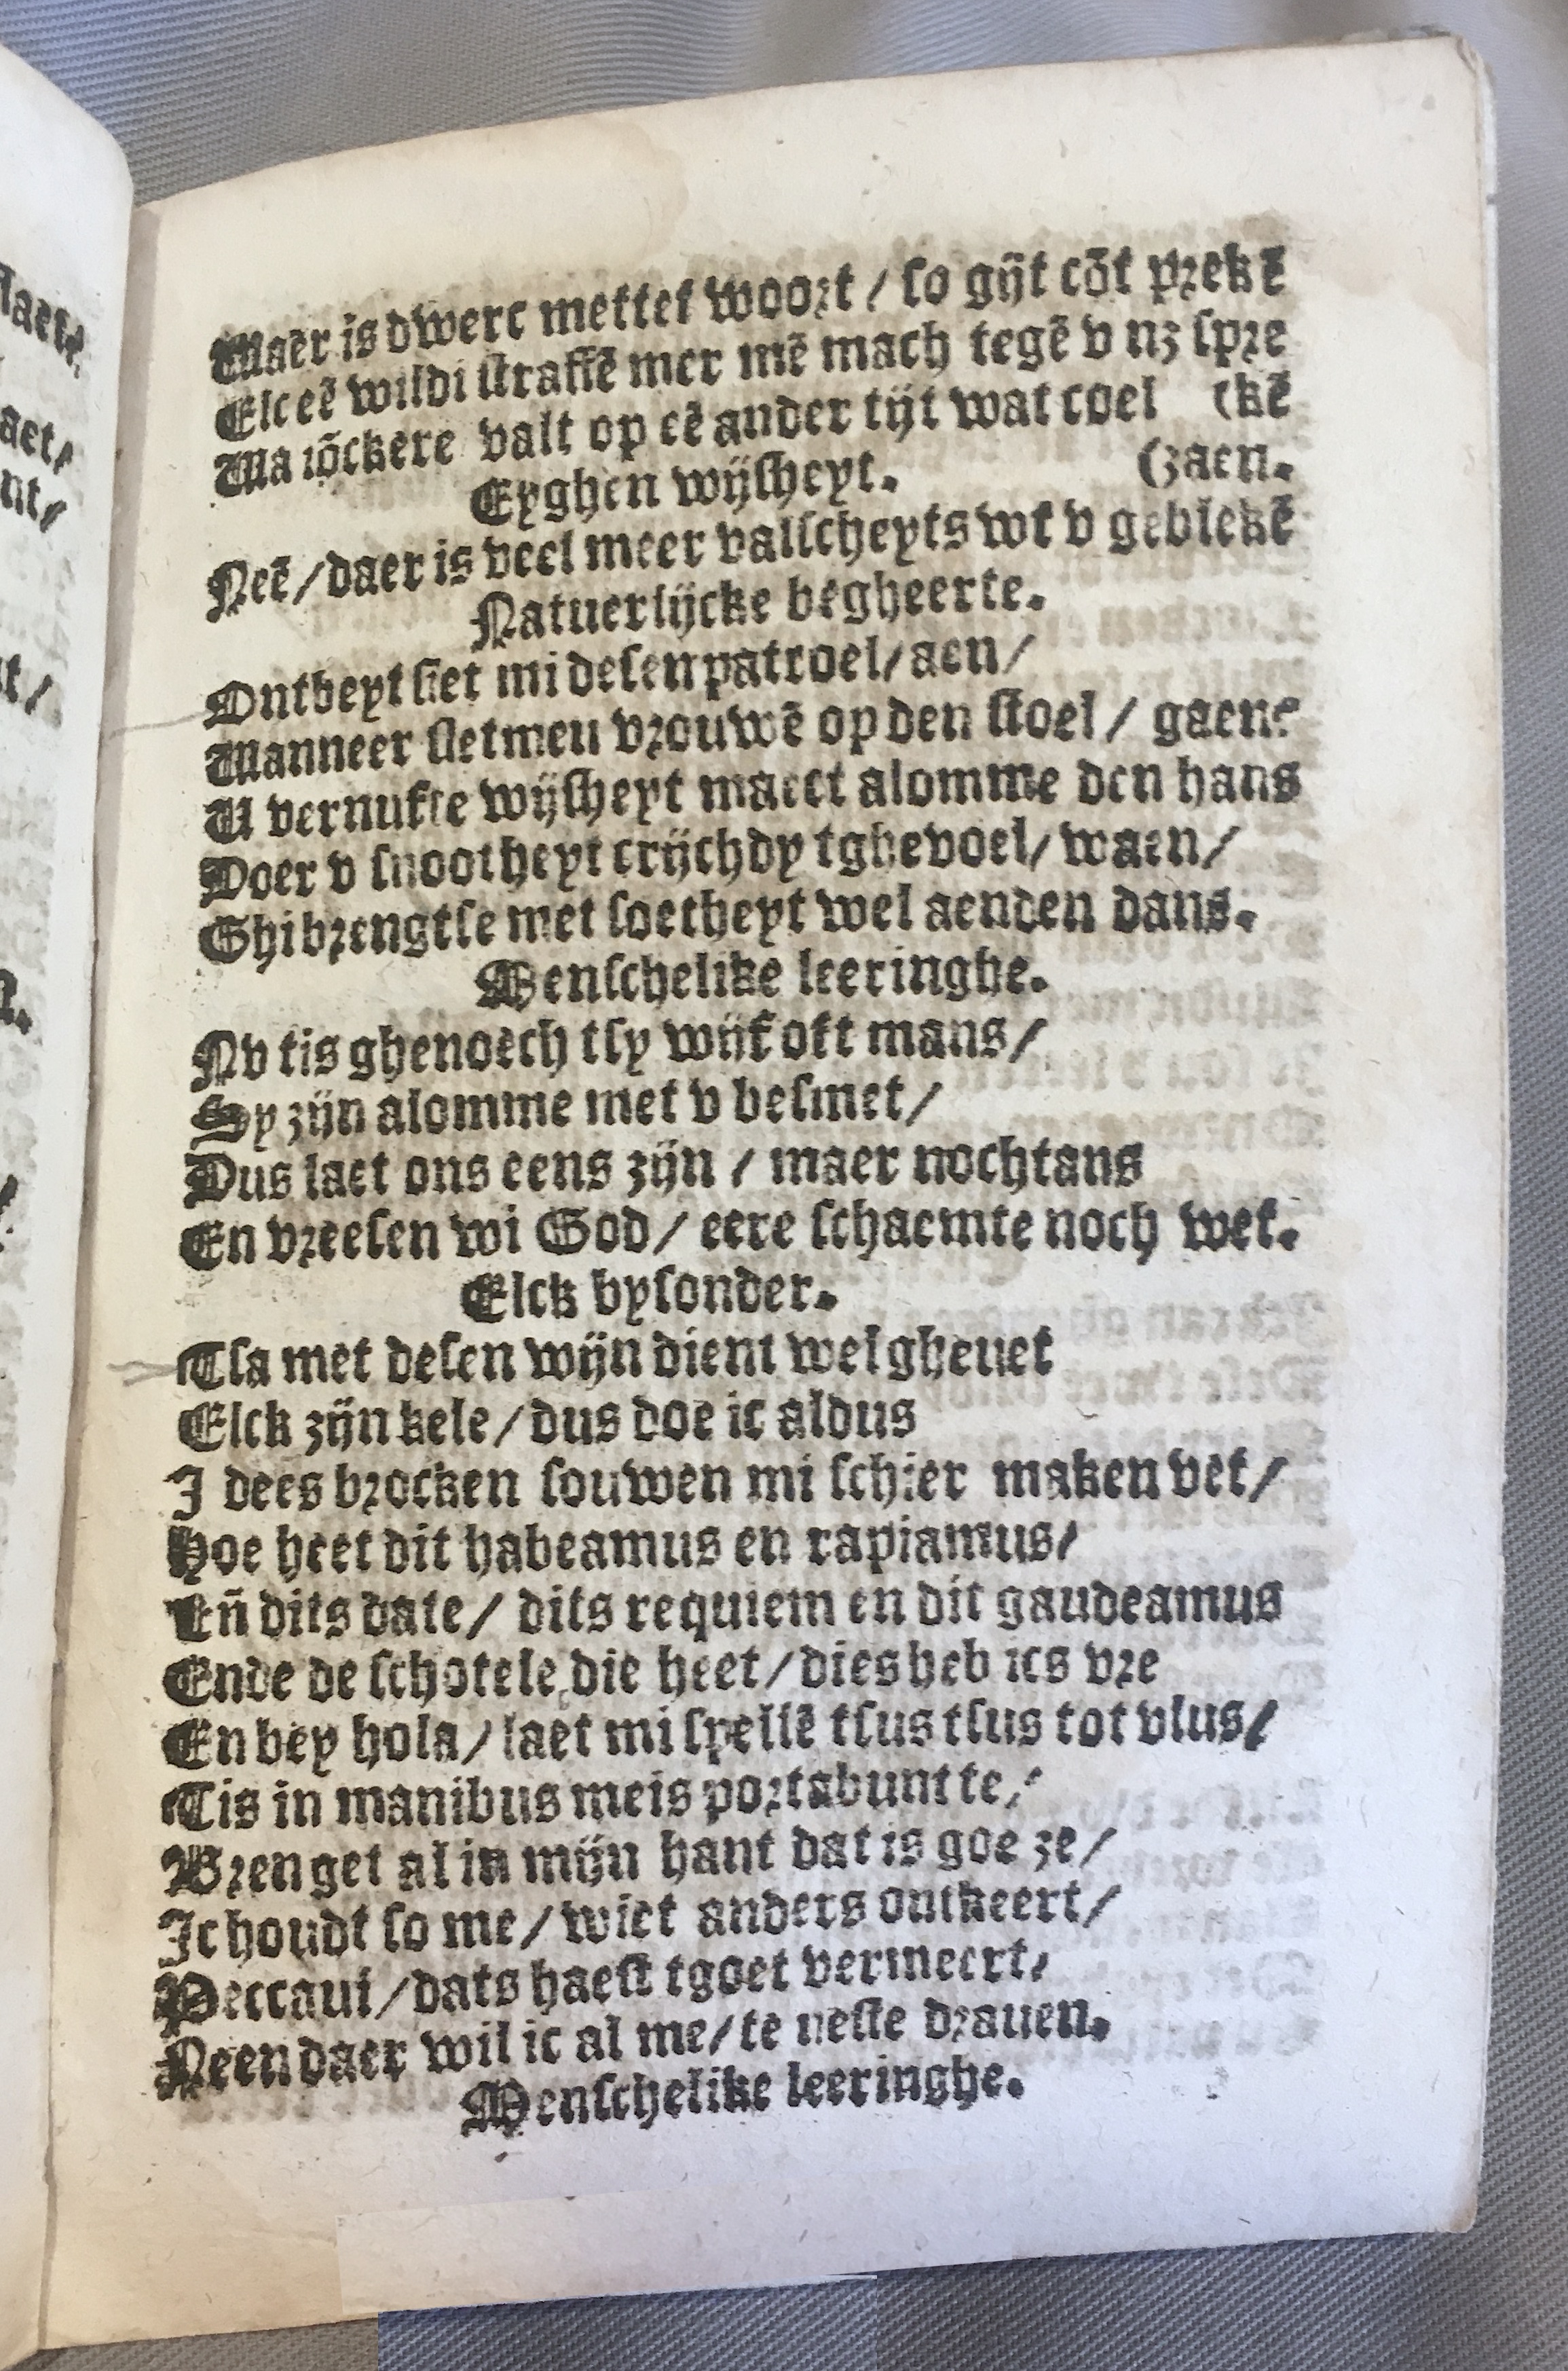 Maer is dwerc mettet woort / so gijt cōt prekē
Elc eē wildi straffē mer mē mach tegē v nz spre
Wa iōckere valt op eē ander tijt wat coel (kē
Eyghen wijsheyt. (zaen.
Neē / daer is veel meer valscheyts wt v geblekē
Natuerlijcke begheerte.
Ontbeyt siet mi desen patroel / aen /
Wanneer sietmeu vrouwē op den stoel / gaen?
U vernufte wijsheyt maect alomme den hans
Doer v snootheyt crijchdy tghevoel / waen /
Ghi brengtse met soetheyt wel aenden dans.
Menschelike leeringhe.
Nv tis ghenoech tsy wijf oft mans /
Sy zijn alomme met v besmet /
Dus laet ons eens zijn / maer nochtans
En vreesen wi God / eere schaemte noch wet.
Elck bysonder.
Tsa met desen wijn dient wel ghenet
Elck zijn kele / dus doe ic aldus
J dees brocken souwen mi schier maken vet /
Hoe heet dit habeamus en rapiamus /
Eñ dits date / dits requiem en dit gaudeamus
Ende de schotele die heet / dies heb ics vre
En bey hola / laet mi spellē tsus tsus tot vlus /
Tis in manibus meis portabunt te /
Brenget al in mijn hant dat is goe ze /
Jc houdt so me / wiet anders ontkeert /
Peccaui / dats haest tgoet vermeert /
Neen daer wil ic al me / te neste drauen.
Menschelike leeringhe.